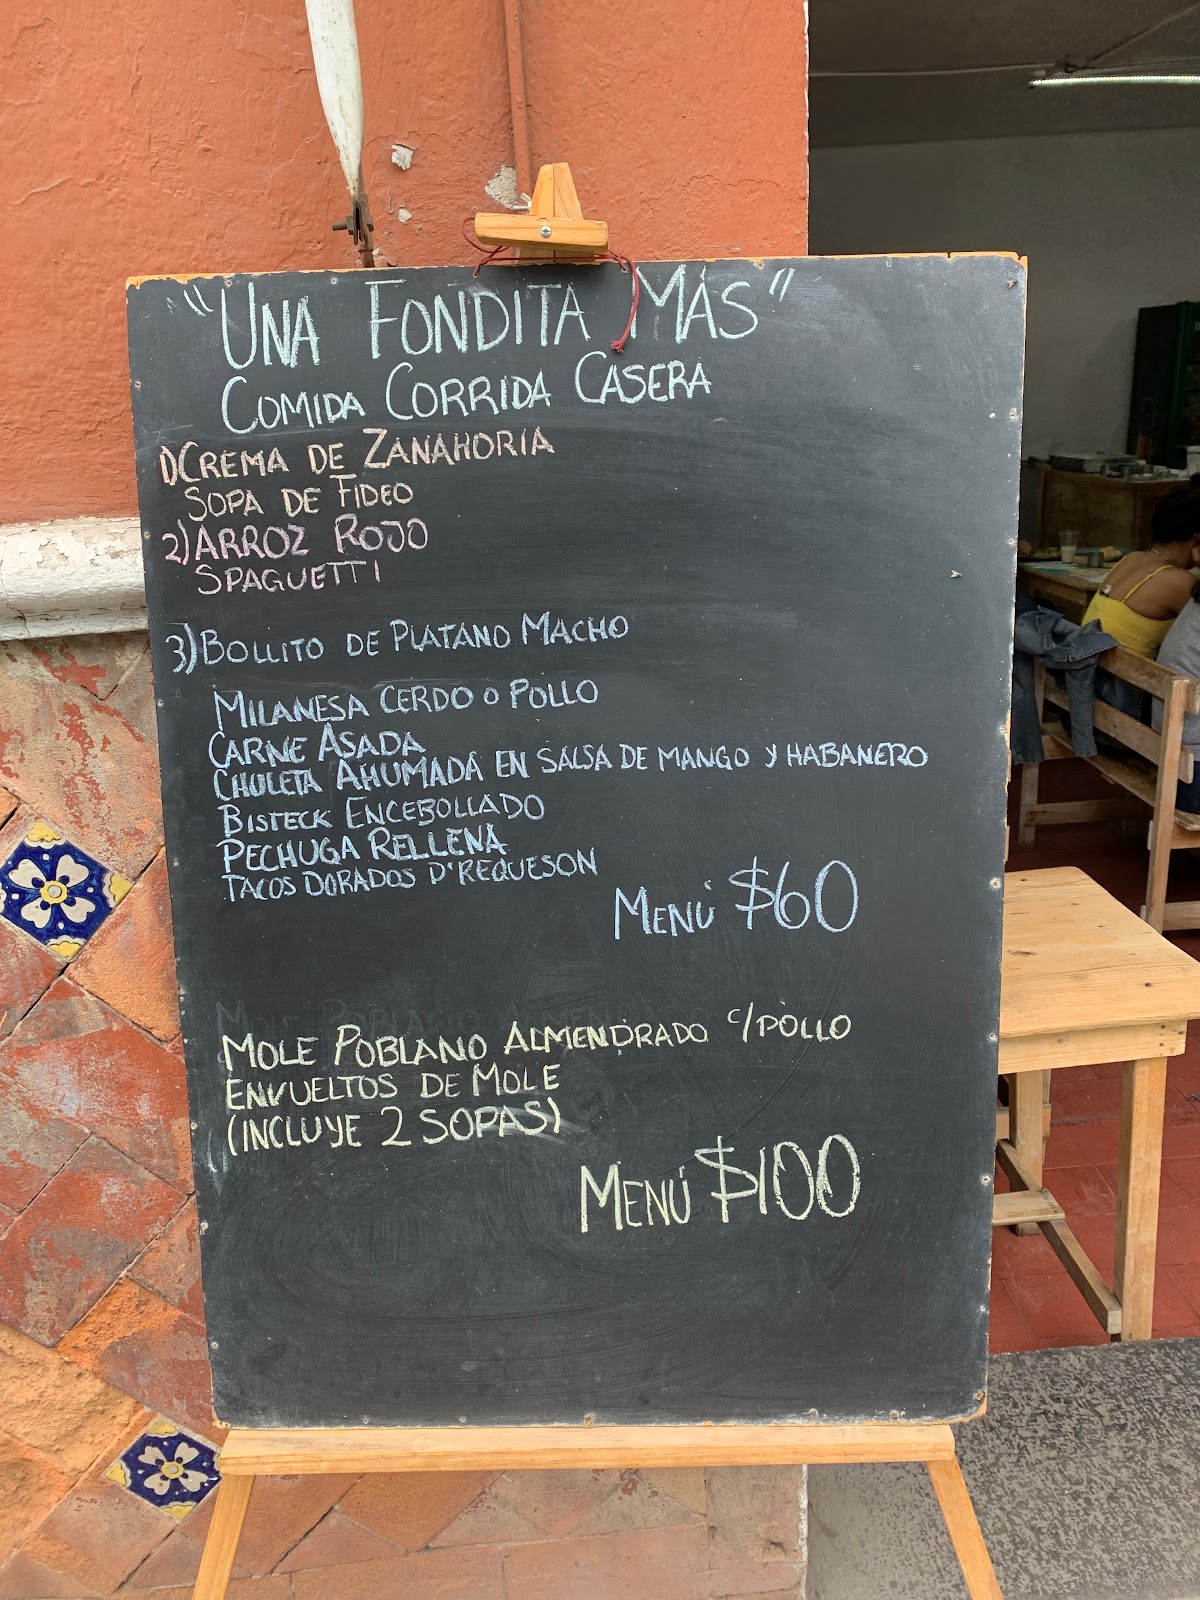 "UNA FONDITA MÁS"
COMIDA CORRIDA CASERA
1)CREMA DE ZANAHORIA
SOPA DE FIDEO
2)ARROZ ROJO
SPAGUETTI
3)BOLLITO DE PLATANO MACHO
MILANESA CERDO O POLLO
CARNE ASADA
CHULETA AHUMADA EN SALSA DE MANGO Y HABANERO
BISTECK ENCEBOLLADO
PECHUGA RELLENA
TACOS DORADOS D'REQUESON
MENÚ $60
MOLE POBLANO ALMENDRADO C/POLLO
ENVUELTOS DE MOLE
(INCLUYE 2 SOPAS)
MENÚ $100